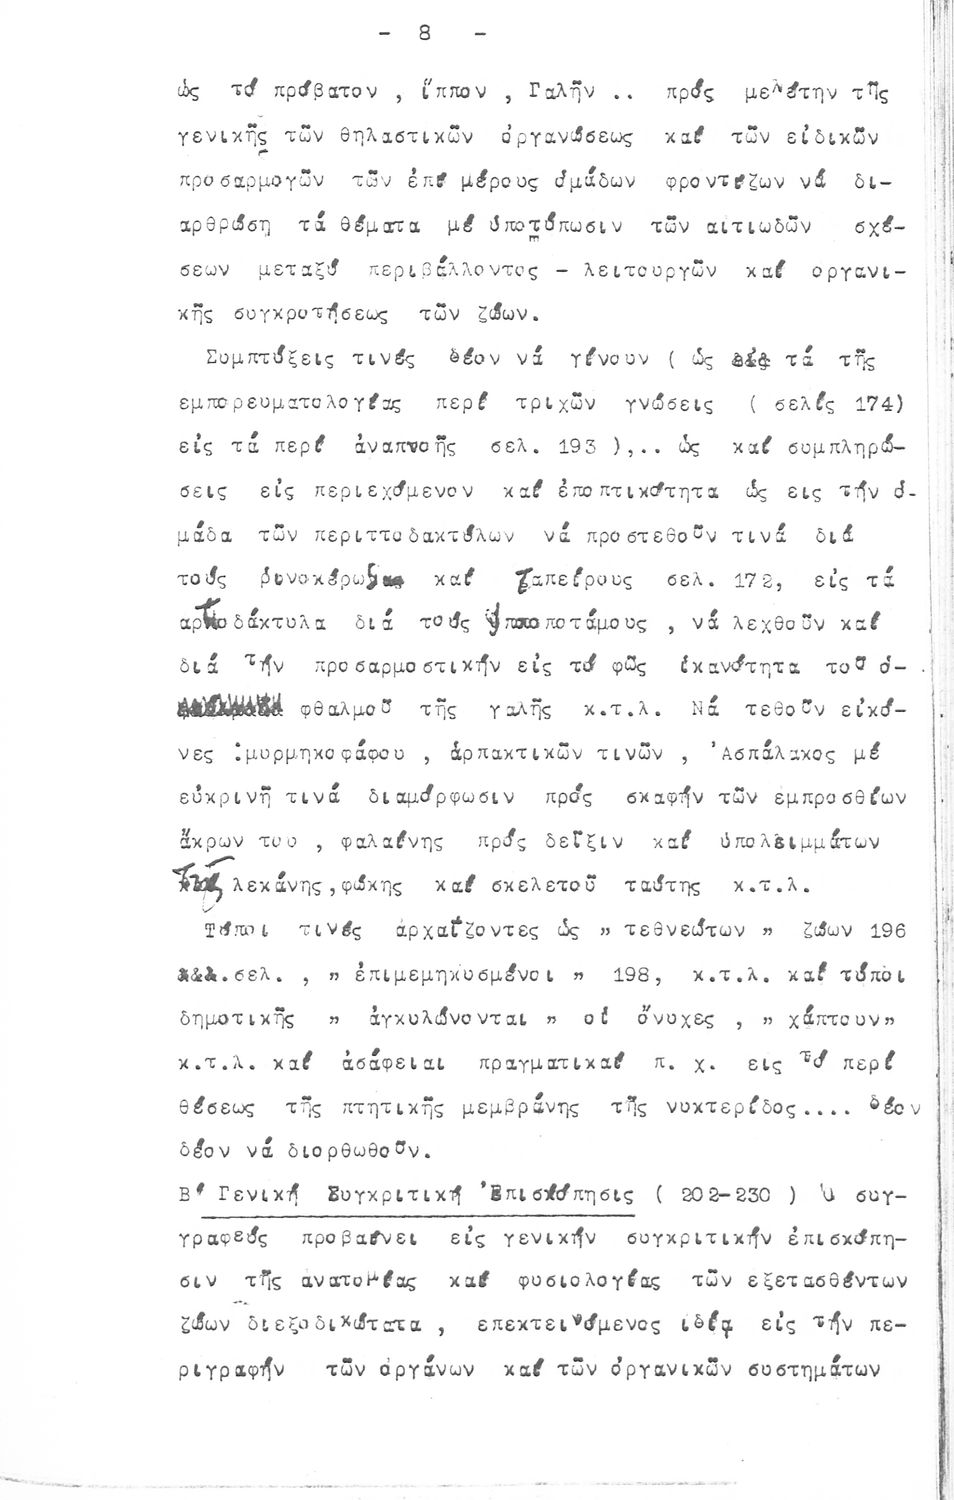 - 8 -
ὡς τό πρόβατον , ἵππον , Γαλῆν .. πρός μελέτην τῆς
γενικῆς τῶν θηλαστικῶν ὀργανώσεως καί τῶν εἰδικῶν
προσαρμογῶν τῶν ἐπί μέρους ὁμάδων φροντίζων νά δι-
αρθρώση τά θέματα μέ ὑποτύπωσιν τῶν αιτιωδῶν σχέ-
σεων μεταξύ περιβάλλοντος - λειτουργῶν καί οργανι-
κῆς συγκροτήσεως τῶν ζώων.
Συμπτύξεις τινές δέον νά γίνουν ( ὡς τά τῆς
εμπορευματολογίας περί τριχῶν γνώσεις ( σελίς 174)
εἰς τά περί ἀναπνοῆς σελ. 193 ),.. ὡς καί συμπληρώ-
σεις εἰς περιεχόμενον καί ἐποπτικότητα ὡς εις τήν ὁ-
μάδα τῶν περιττοδακτύλων νά προστεθοῦν τινά διά
τούς ρινοκέρως καί Ταπείρους σελ. 172, εἰς τά
αρτιοδάκτυλα διά τούς ἱπποποτάμους , νά λεχθοῦν καί
διά τήν προσαρμοστικήν εἰς τό φῶς ἱκανότητα τοῦ ὀ-
φθαλμοῦ τῆς γαλῆς κ.τ.λ. Νά τεθοῦν εἰκό-
νες :μυρμηκοφάφου , ἁρπακτικῶν τινῶν , Ἀσπάλακος μέ
εὐκρινῆ τινά διαμόρφωσιν πρός σκαφήν τῶν εμπροσθίων
ἄκρων του , φαλαίνης πρός δεῖξιν καί ὑπολειμμάτων
τῆς λεκάνης,φώκης καί σκελετοῦ ταύτης κ.τ.λ.
Τύποι τινές ἀρχαΐζοντες ὡς " τεθνεώτων " ζώων 196
.σελ. , " ἐπιμεμηκυσμένοι " 198, κ.τ.λ. καί τύποι
δημοτικῆς " ἀγκυλώνονται " οἱ ὄνυχες , " χάπτουν"
κ.τ.λ. καί ἀσάφειαι πραγματικαί π. χ. εις τό περί
θέσεως τῆς πτητικῆς μεμβράνης τῆς νυκτερίδος.... δέον
δέον νά διορθωθοῦν.
Β' Γενική Συγκριτική Ἐπισκόπησις ( 202-230 ) Ὁ συγ-
γραφεύς προβαίνει εἰς γενικήν συγκριτικήν ἐπισκόπη-
σιν τῆς ἀνατομίας καί φυσιολογίας τῶν εξετασθέντων
ζώων διεξοδικώτατα , επεκτεινόμενος ιδίᾳ εἰς τήν πε-
ριγραφήν τῶν ὀργάνων καί τῶν ὀργανικῶν συστημάτων